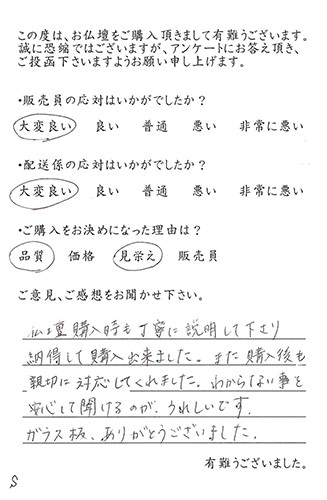 この度は、お仏壇をご購入頂きまして有難うございます。
誠に恐縮ではございますが、アンケートにお答え頂き、
ご投函下さいますようお願い申し上げます。
・販売員の応対はいかがでしたか？
大変良い 良い 普通 悪い 非常に悪い
・配送係の応対はいかがでしたか？
大変良い 良い 普通 悪い 非常に悪い
・ご購入をお決めになった理由は？
品質 価格 見栄え 販売員
ご意見、ご感想をお聞かせ下さい。
仏壇購入時も丁寧に説明して下さり
納得して購入出来ました。また購入後も
親切に対応してくれました。わからない事を
安心して聞けるのが、うれしいです。
ガラス板、ありがとうございました。
有難うございました。